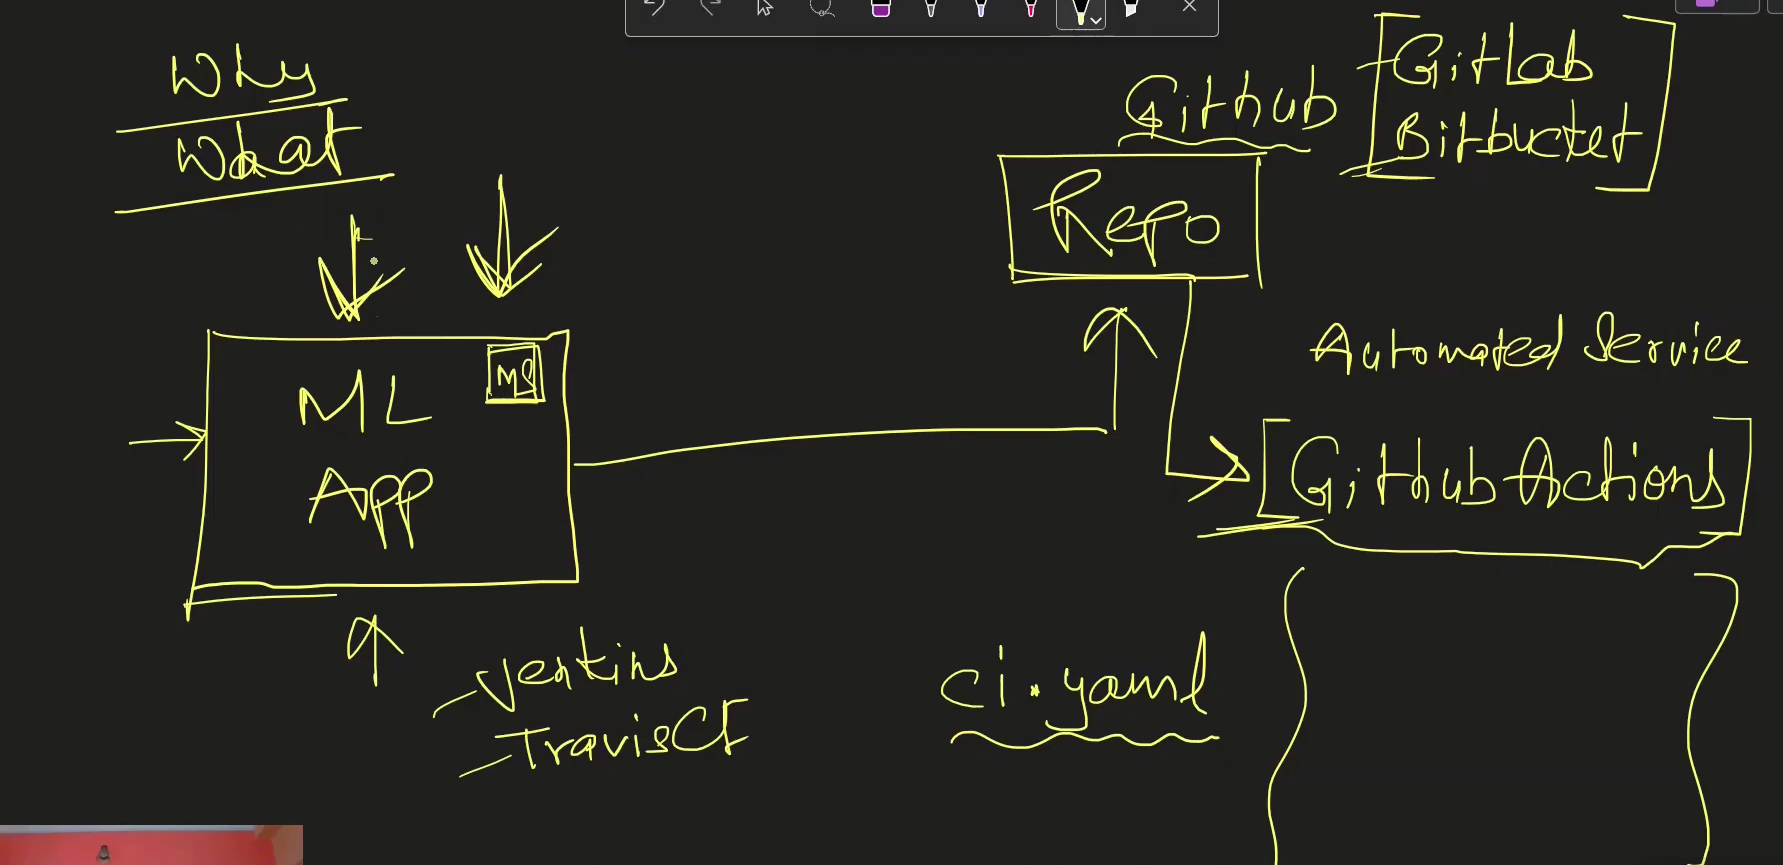 Why
What
Github
GitLab
Bitbucket
Repo
Automated Service
ML
App
MS
Github Actions
Jenkins
TravisCI
ci.yaml